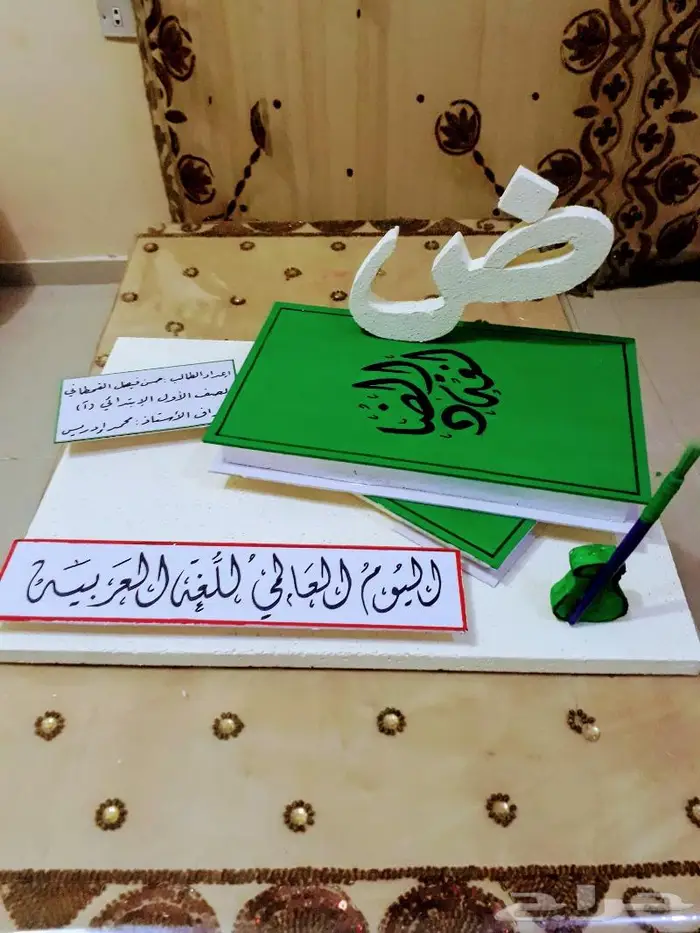 ض
لغة الضاد
إعداد الطالب : حسن فيصل القحطاني
لصف الأول الإبتدائي (آ)
راف الأستاذ : محمد إدريس
اليوم العالمي للغة العربية
حراج